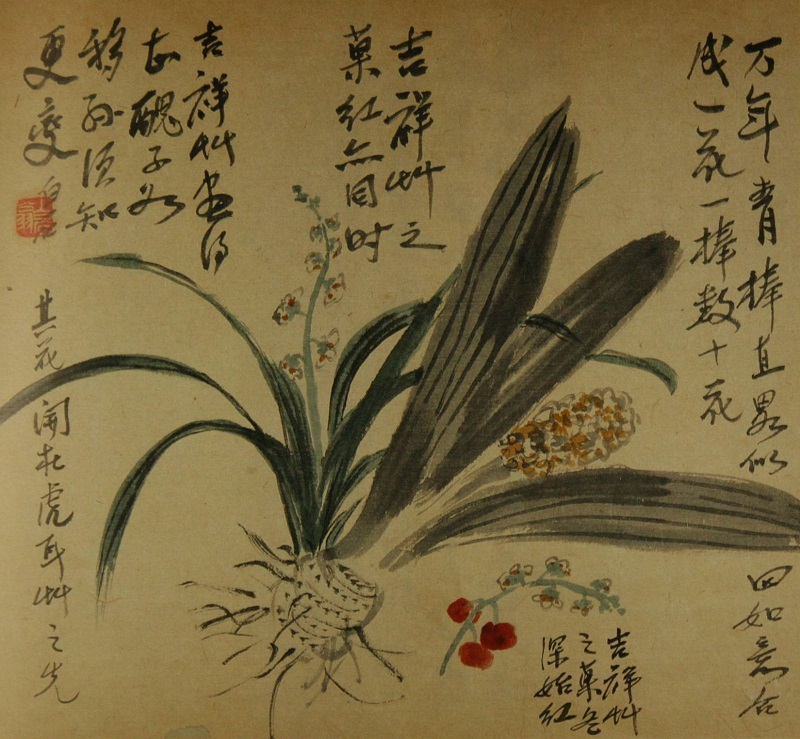 万年青棒直累似
四如意合
成一花一棒数十花
吉祥艸之
菓红亦同时
吉祥艸之
菓冬
深始红
吉祥艸
醜子
移孙须知
更变 白石
其花開在虎耳艸之先